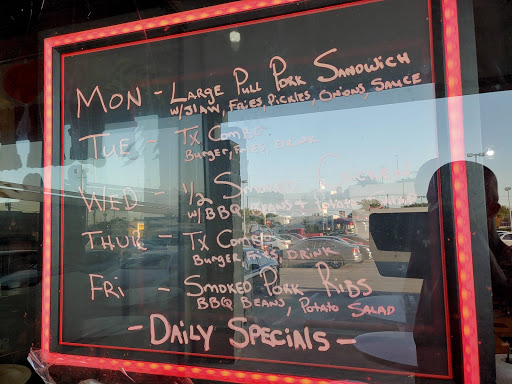 Mon - Large Pull Pork Sandwich
w/Slaw, Fries, Pickles, Onions, Sauce
Tue - Tx Combo
Burger, Fries, Drink
Wed - 1/2 Smoked
w/BBQ Beans +
Thur - Tx Combo
Burger Fries, Drink
Fri - Smoked Pork Ribs
BBQ Beans, Potato Salad
- Daily Specials -